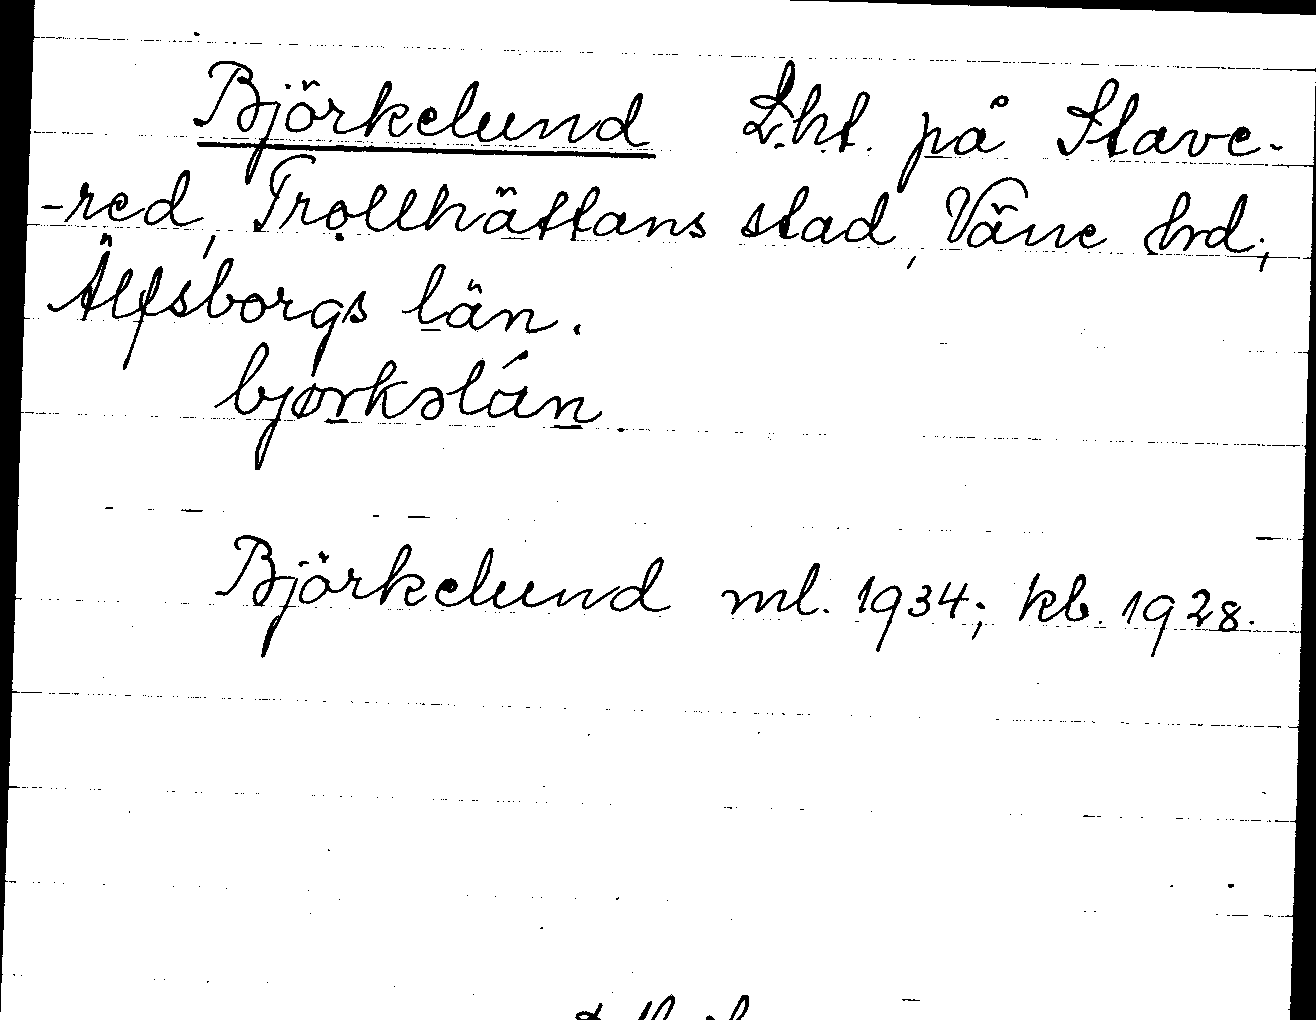 Björkelund L.ht. på Stave-
-red, Trollhättans stad, Väne hrd,
Älfsborgs län.
bjørkəlún.
Björkelund ml. 1934; kb. 1928.